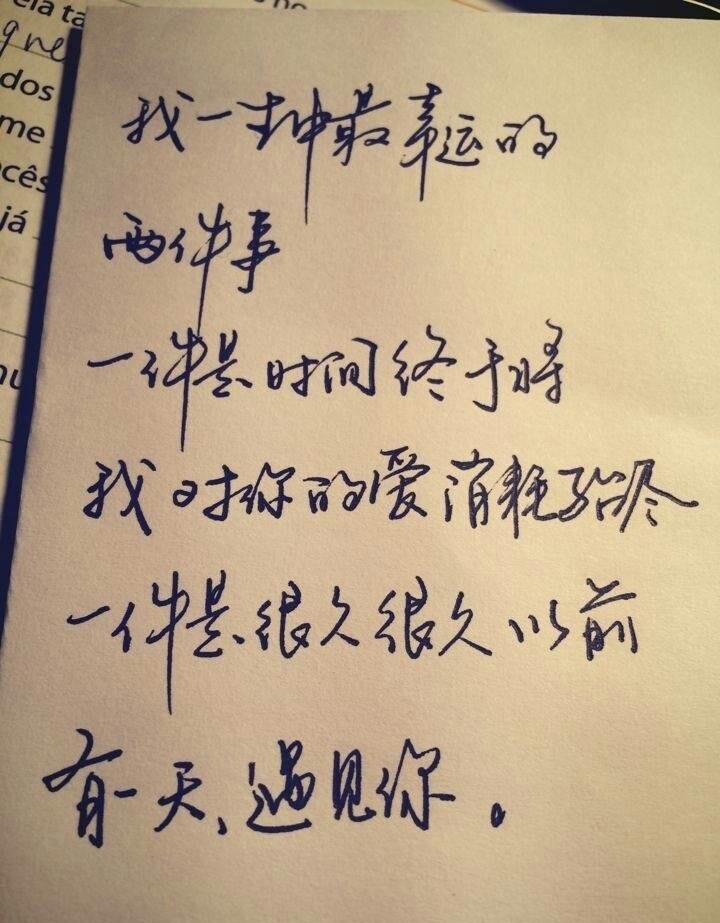 ela ta
que
dos
me
cês
já
我一生中最幸运的
两件事
一件是时间终于将
我对你的爱消耗殆尽
一件是很久很久以前
有一天、遇见你。